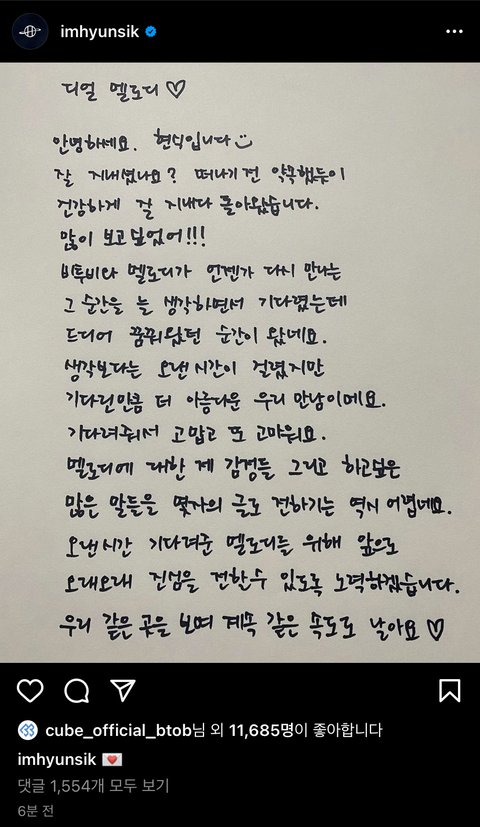 imhyunsik
디얼 멜로디♡
안녕하세요. 현식입니다
잘 지내셨나요? 떠나기 전 약속했듯이
건강하게 잘 지내다 돌아왔습니다.
많이 보고싶었어!!!
비투비와 멜로디가 언젠가 다시 만나는
그 순간을 늘 생각하면서 기다렸는데
드디어 꿈꿔왔던 순간이 왔네요.
생각보다는 오랜시간이 걸렸지만
기다린만큼 더 아름다운 우리 만남이네요.
기다려줘서 고맙고 또 고마워요.
멜로디에 대한 제 감정들 그리고 하고싶은
많은 말들을 몇자의 글로 전하기는 역시 어렵네요.
오랜시간 기다려준 멜로디들 위해 앞으로
오래오래 진심을 전할수 있도록 노력하겠습니다.
우리 같은 곳을 보며 계속 같은 속도로 날아요♡
cube_official_btob님 외 11,685명이 좋아합니다
imhyunsik 💌
댓글 1,554개 모두 보기
6분 전